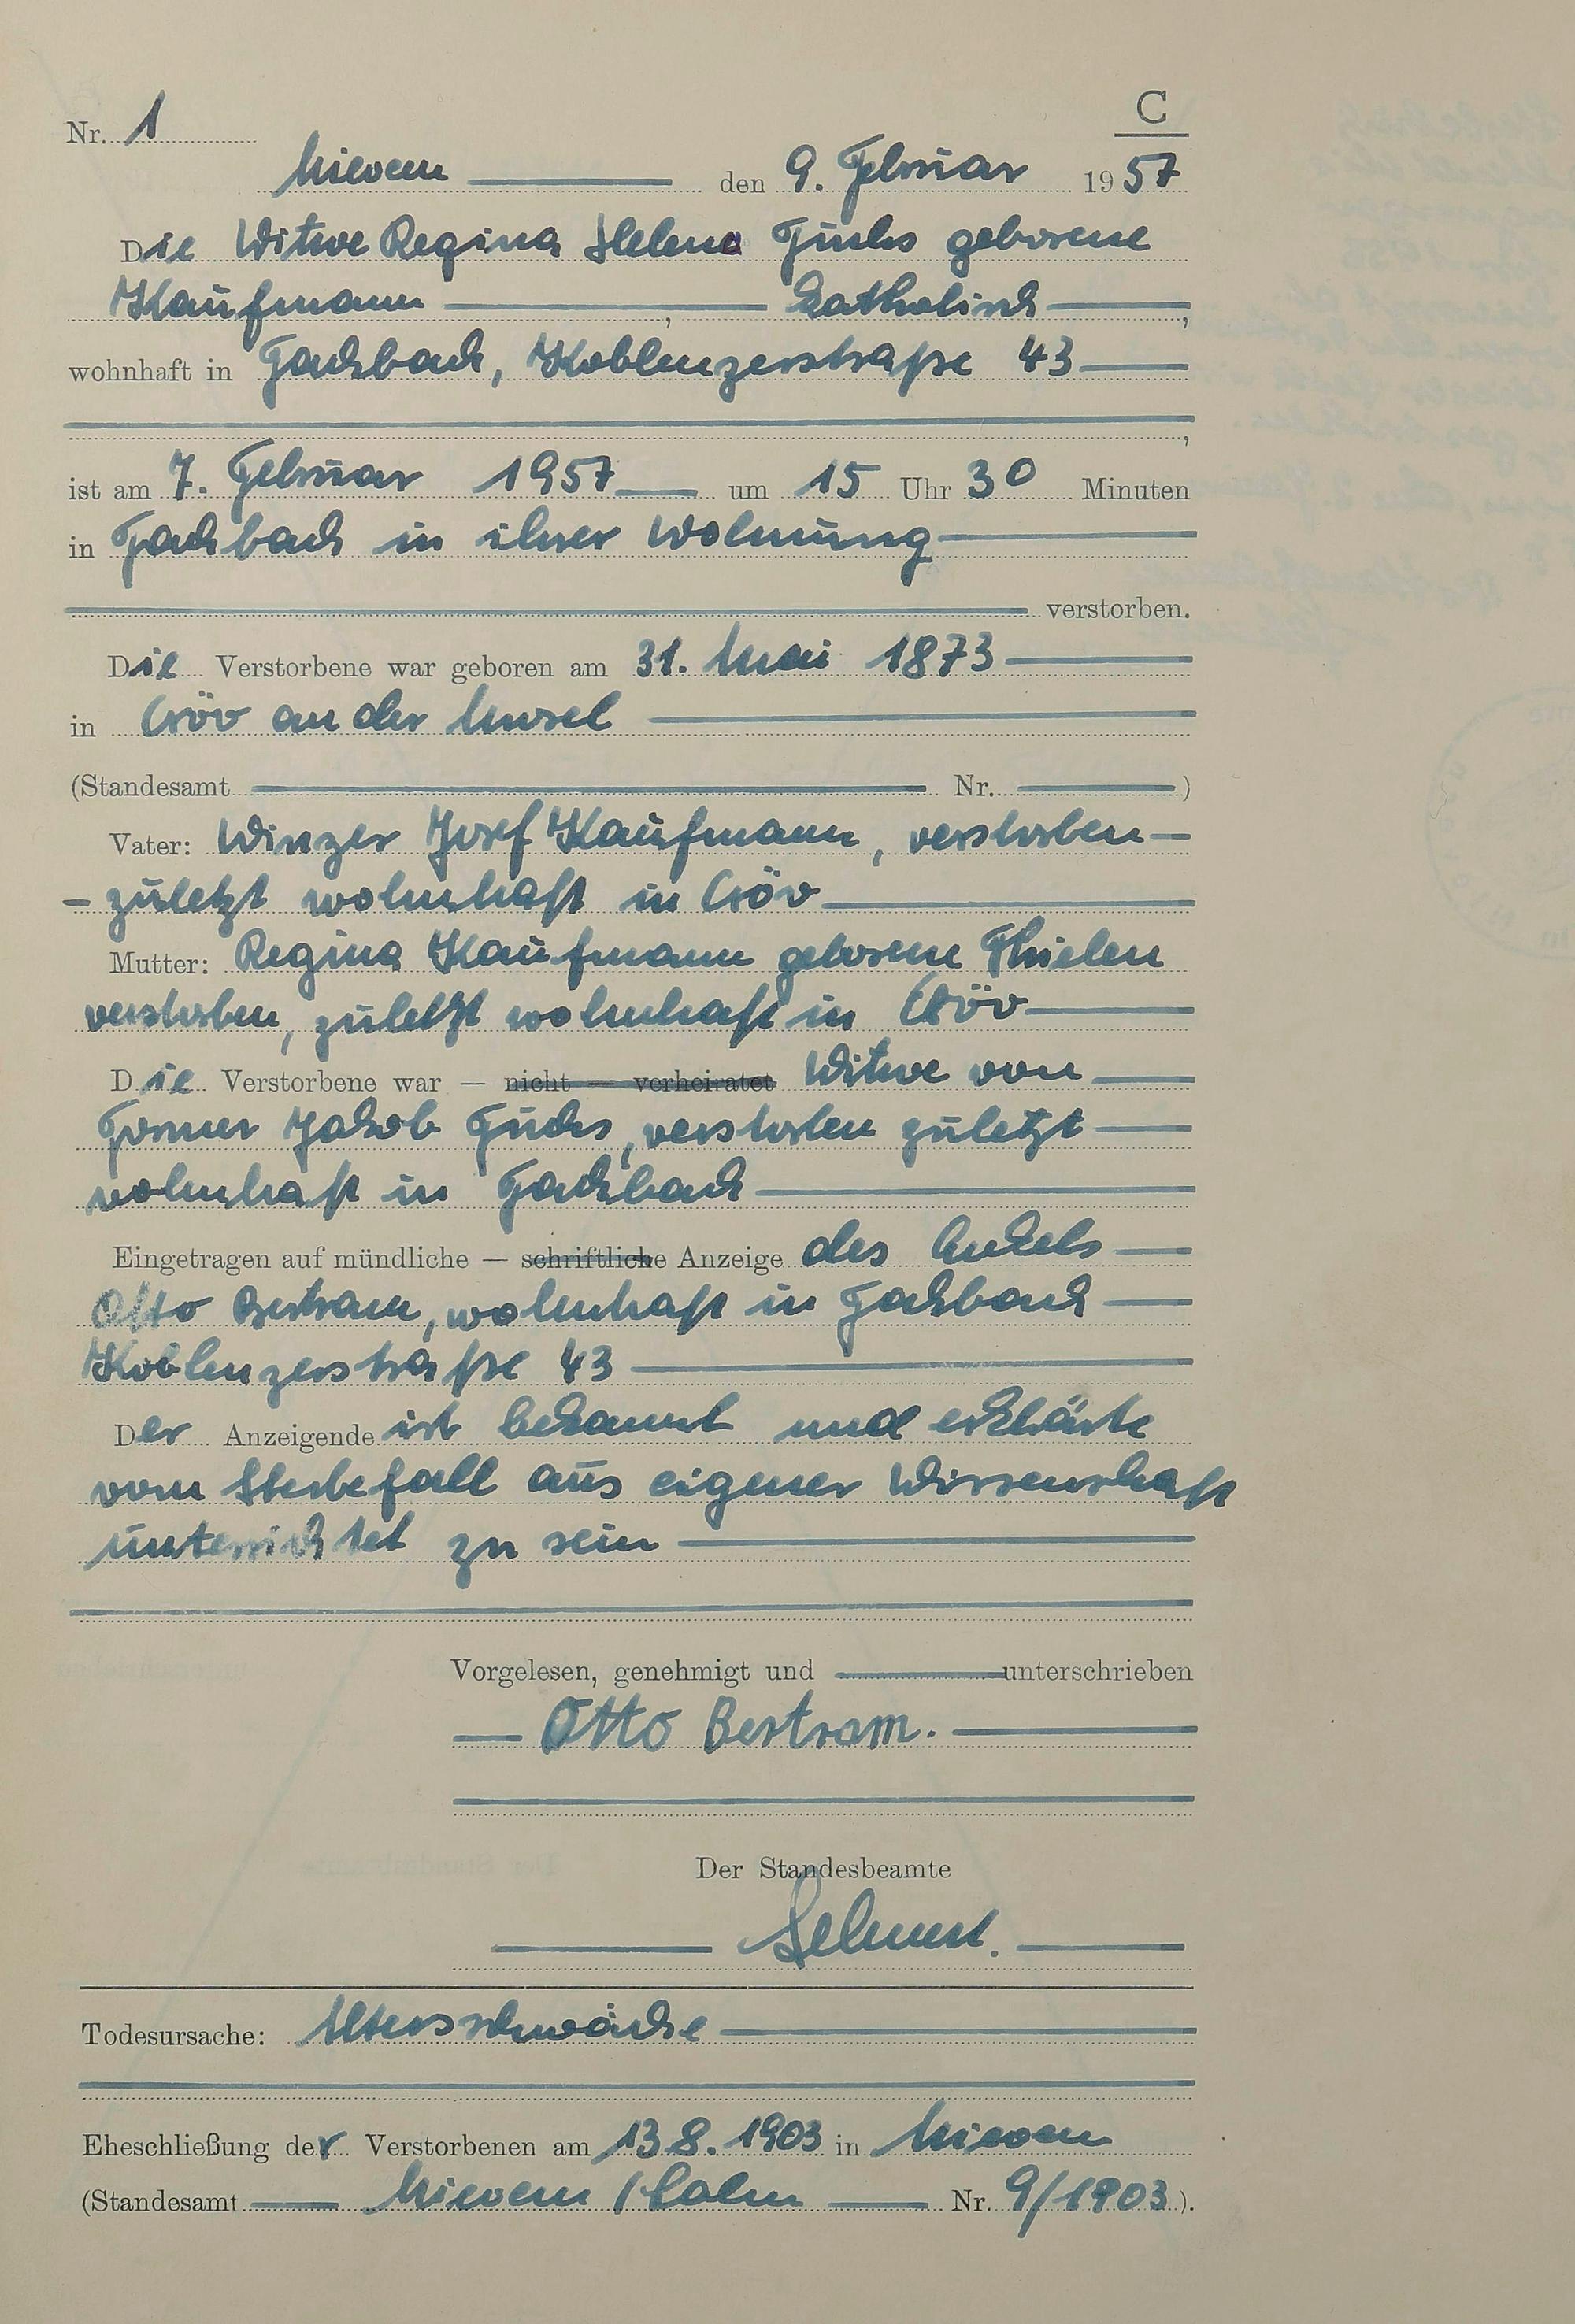 C
Nr. 1
Nievern den 9. Februar 1957
Die Witwe Regina Helena Fuchs geborene
Kaufmann , katholisch ,
wohnhaft in Fachbach, Koblenzerstraße 43
,
ist am 7. Februar 1957 um 15 Uhr 30 Minuten
in Fachbach in ihrer Wohnung
verstorben.
Die Verstorbene war geboren am 31. Mai 1873
in Cröv an der Mosel
(Standesamt Nr. )
Vater: Winzer Josef Kaufmann, verstorben
zuletzt wohnhaft in Cröv
Mutter: Regina Kaufmann geborene Thielen
verstorben, zuletzt wohnhaft in Cröv
Die Verstorbene war — nicht — verheiratet Witwe von
Former Jakob Fuchs, verstorben zuletzt
wohnhaft in Fachbach
Eingetragen auf mündliche — schriftliche Anzeige des Enkels
Otto Bertram, wohnhaft in Fachbach
Koblenzerstraße 43
Der Anzeigende ist bekannt und erklärte
vom Sterbefall aus eigener Wissenschaft
unterrichtet zu sein
Vorgelesen, genehmigt und unterschrieben
Otto Bertram.
Der Standesbeamte
Todesursache: Altersschwäche
Eheschließung der Verstorbenen am 13.8.1903 in Nievern
(Standesamt Nievern / Lahn Nr. 9/1903).